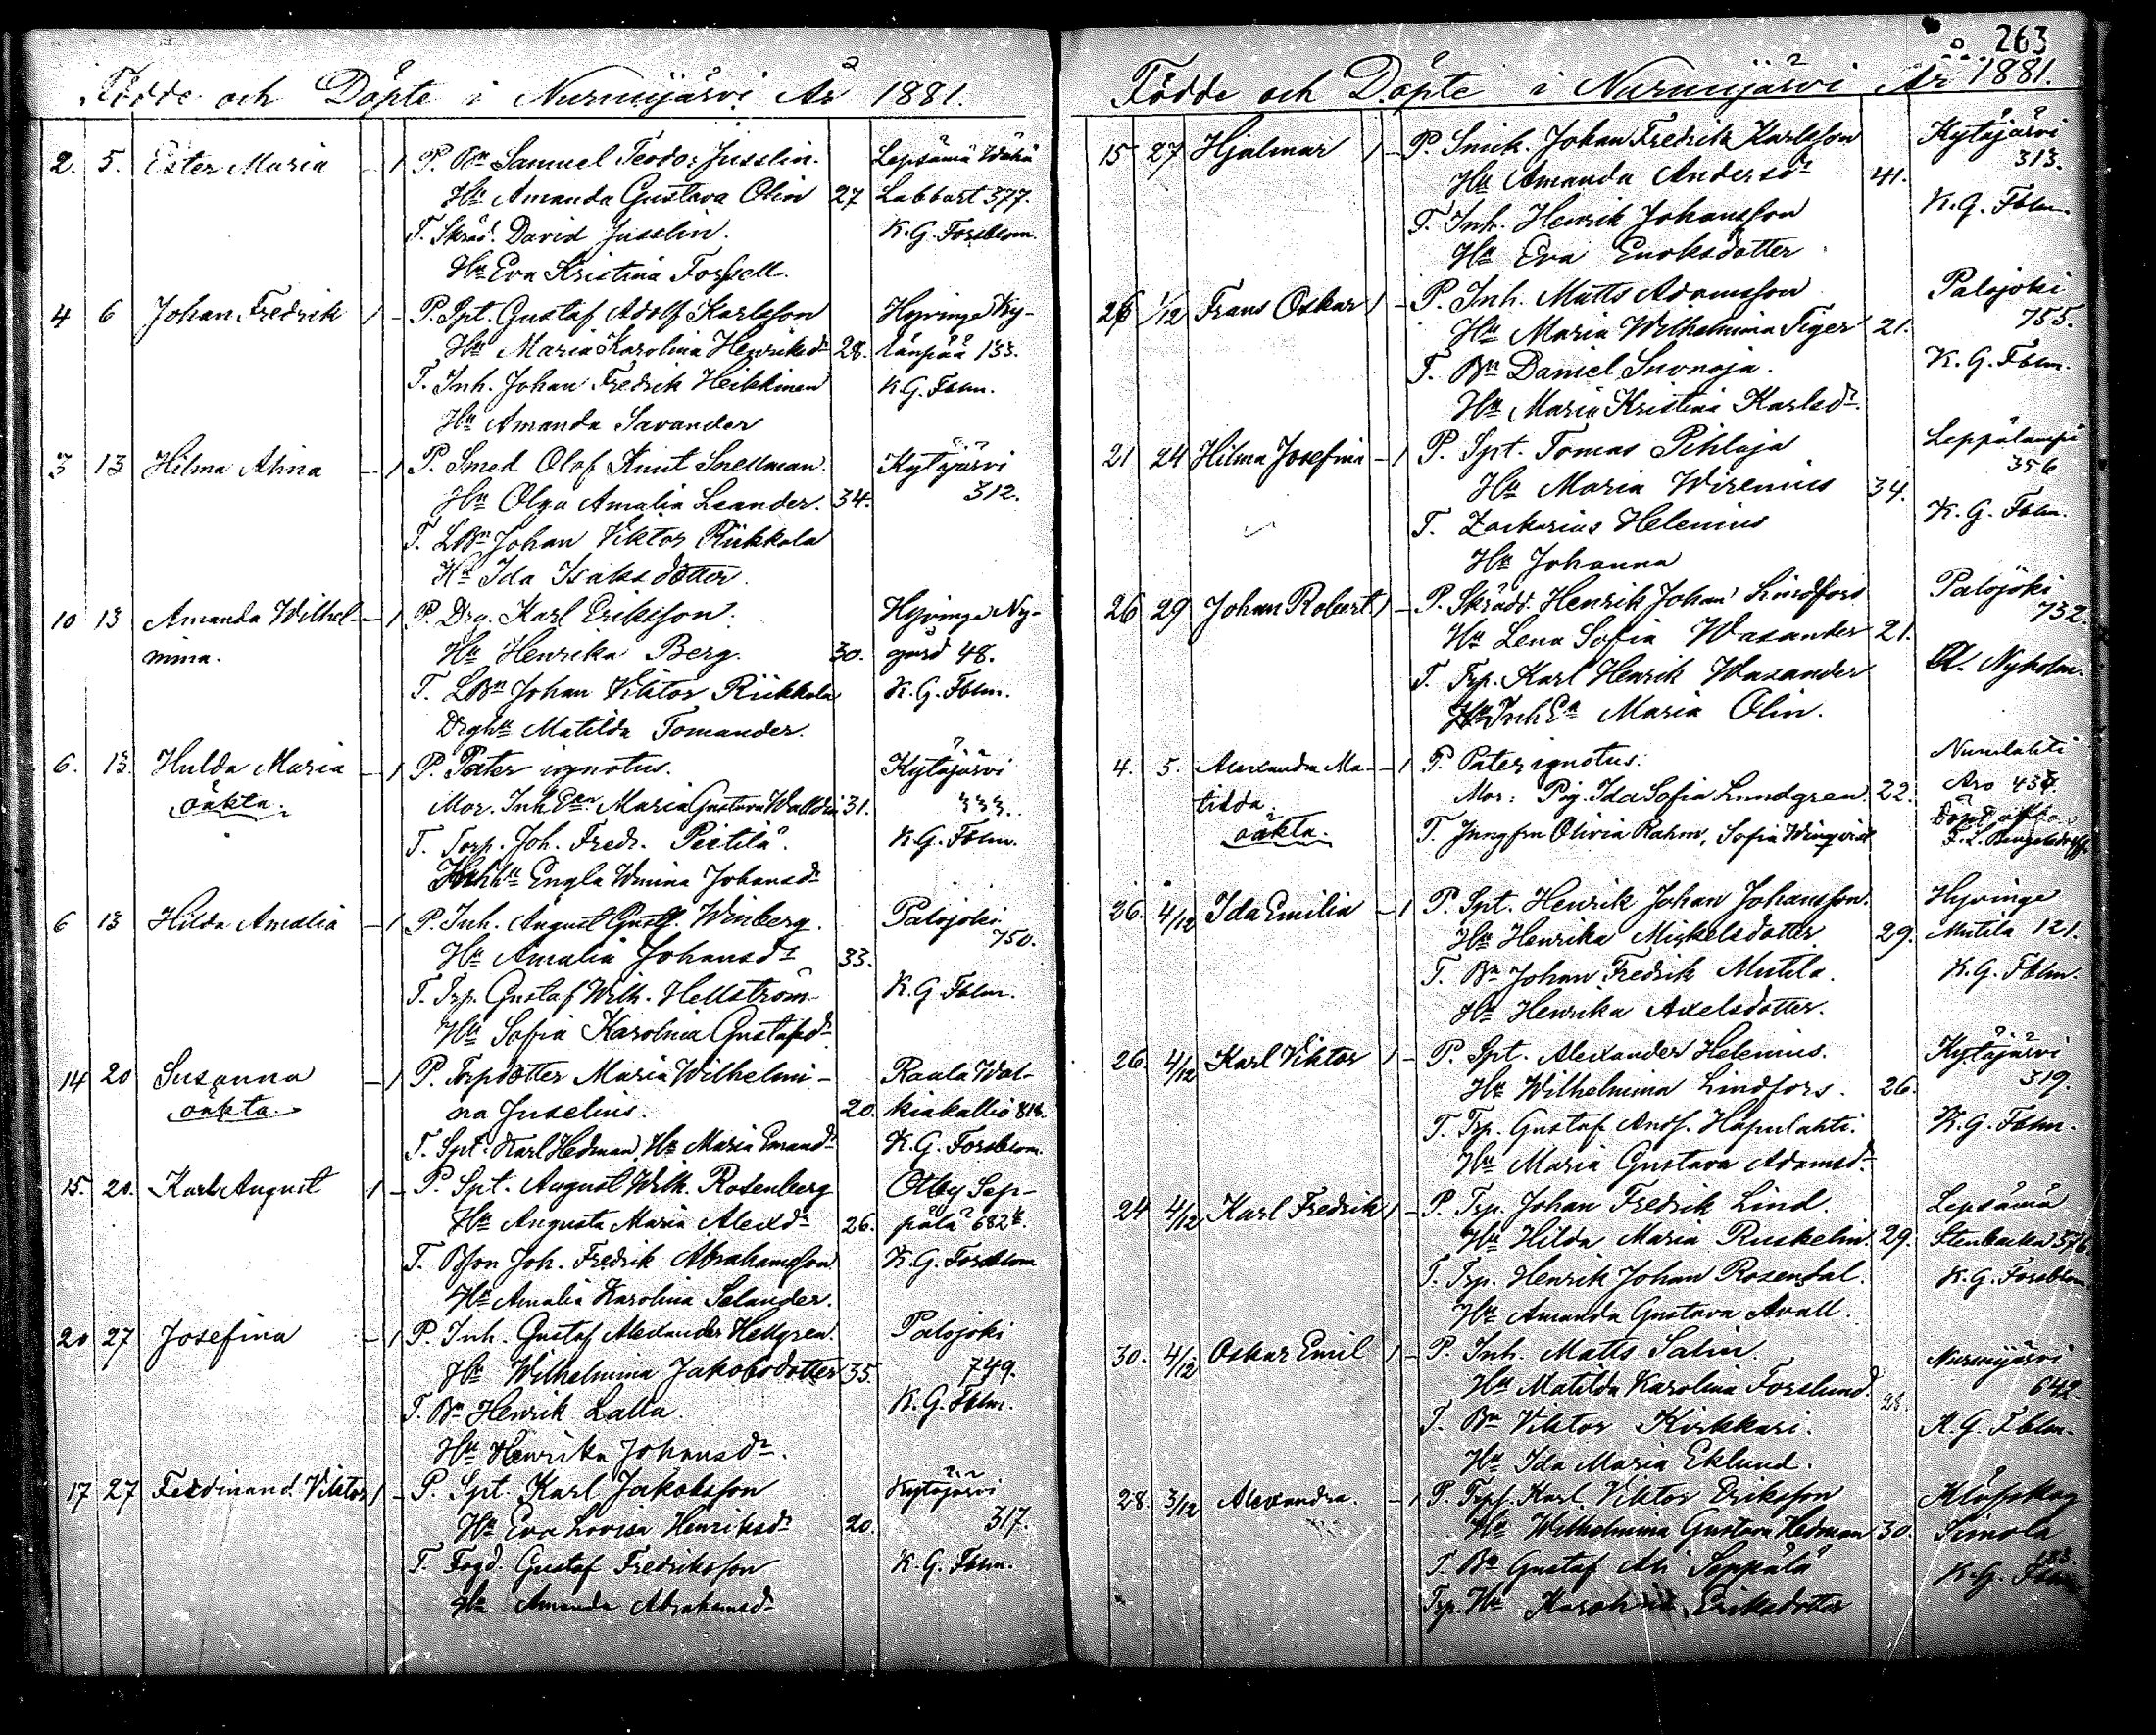 Födde och Döpte i Nurmijärvi År 1881.
2. 5. Ester Maria - 1 P. Bn Samuel Teodor Jusslin. Lepsämä Wähä
Hu Amanda Gustava Olin 27 Labbart 377.
T. Skräd. David Jusslin. K. G. Forsblom.
Hu Eva Kristina Forssell.
4 6 Johan Fredrik 1 - P. Spt. Gustaf Adolf Karlsson Hyvinge Ky-
Hu Maria Karolina Henriksdr 28. länpää 133.
T. Inh. Johan Fredrik Heikkinen K. G. Fblm.
Hu Amanda Savander
3 13 Hilma Alina - 1 P. Smed Olof Knut Snellman. Kytäjärvi
Hu Olga Amalia Leander. 34. 312.
T. LBn Johan Viktor Riikkala
Hu Ida Isaksdotter.
10 13 Amanda Wilhel- - 1 P. Drg. Karl Eriksson. Hyvinge Ny-
mina. Hu Henrika Berg. 30. gård 48.
T. LBn Johan Viktor Riikkala K. G. Fblm.
Drghu Matilda Tomander.
6. 13. Hulda Maria - 1 P. Pater ignotus. Kytäjärvi
oäkta. Mor. Inh. Maria Gustava 31. 333.
T. Torp. Joh. Fredr. Pietilä. K. G. Fblm.
Engla Wmina Johansdr
6 13 Hilda Amalia - 1 P. Inh. August Gustf. Winberg. Palojoki
Hu Amalia Johansdr 33. 750.
T. Trp. Gustaf Wilh. Hellström K. G. Fblm.
Hu Sofia Karolina Gustafsdr
14 20 Susanna - 1 P. Torpdotter Maria Wilhelmi- Raala Wal-
oäkta. na Juselius. 20. kiakallio 818.
T. Spt. Karl Hedman, Hu Maria Emandr K. G. Forsblom.
15. 20. Karl August 1 - P. Spt. August Wilh. Rosenberg Otby Sep-
Hu Augusta Maria Alexdr 26. pälä 682
T. Bson Joh. Fredrik Abrahamsson K. G. Forsblom
Hu Amalia Karolina Selander.
20 27 Josefina - 1 P. Inh. Gustaf Alexander Hellgren. Palojoki
Hu Wilhelmina Jakobsdotter 35. 749.
T. Bn Henrik Lalla. K. G. Fblm.
Hu Henrika Johansdr.
17 27 Ferdinand Viktor 1 - P. Spt. Karl Jakobsson Kytäjärvi
Hu Eva Lovisa Henriksdr 20. 317.
T. Fogd. Gustaf Fredriksson K. G. Fblm.
Hu Amanda Abrahamsdr
263
Födde och Döpte i Nurmijärvi År 1881.
15 27 Hjalmar 1 - P. Snick. Johan Fredrik Karlsson Kytäjärvi
Hu Amanda Andersdr 41. 313.
T. Inh. Henrik Johansson K. G. Fblm.
Hu Eva Eriksdotter
26 1/12 Frans Oskar 1 - P. Inh. Matts Adamsson Palojoki
Hu Maria Wilhelmina Tiger 21. 755.
T. Bn Daniel Suonoja. K. G. Fblm.
Hu Maria Kristina Karlsdr.
21 24 Hilma Josefina - 1 P. Spt. Tomas Pihlaja Leppälampi
Hu Maria Wirenius 34. 356
T. Zackarias Helenius K. G. Fblm.
Hu Johanna
26 29 Johan Robert 1 - P. Skrädd. Henrik Johan Lindfors Palojoki
Hu Lena Sofia Wasander 21. 732.
T. Trp. Karl Henrik Wasander Nyholm.
Maria Olin.
4. 5. Alexandra Ma- - 1 P. Pater ignotus. Numlahti
tilda. Mor: Pig. Ida Sofia Lundgren. 22. Aro
oäkta. T. Jungfrun Olivia Rahm, Sofia Winqvist Döpt af
26. 4/12 Ida Emilia - 1 P. Spt. Henrik Johan Johansson. Hyvinge
Hu Henrika Mickelsdotter 29. Mutila 121.
T. Bn Johan Fredrik Mutila. K. G. Fblm.
Hu Henrika Axelsdotter.
26. 4/12 Karl Viktor 1 - P. Spt. Alexander Helenius. Kytäjärvi
Hu Wilhelmina Lindfors. 26. 319.
T. Trp. Gustaf Andf. Hapulahti. K. G. Fblm.
Hu Maria Gustava Adamsdr.
24 4/12 Karl Fredrik 1 - P. Trp. Johan Fredrik Lind. Lepsämä
Hu Hilda Maria Ruskelin. 29. Stenbacka 376
T. Trp. Henrik Johan Rosendal. K. G. Forsblom
Hu Amanda Gustava Avall.
30. 4/12 Oskar Emil 1 - P. Inh. Matts Salin. Nurmijärvi
Hu Matilda Karolina Forslund. 28. 642
T. Bn Viktor Kirkkari. K. G. Fblm.
Hu Ida Maria Eklund.
28. 3/12 Alexandra. - 1 P. Trpf. Karl Viktor Eriksson Klöfskog
Hu Wilhelmina Gustava Hedman 30. Simola
T. Bn Gustaf Ali Seppälä 183.
Trp. Hu Karolina Eriksdotter K. G. Fblm